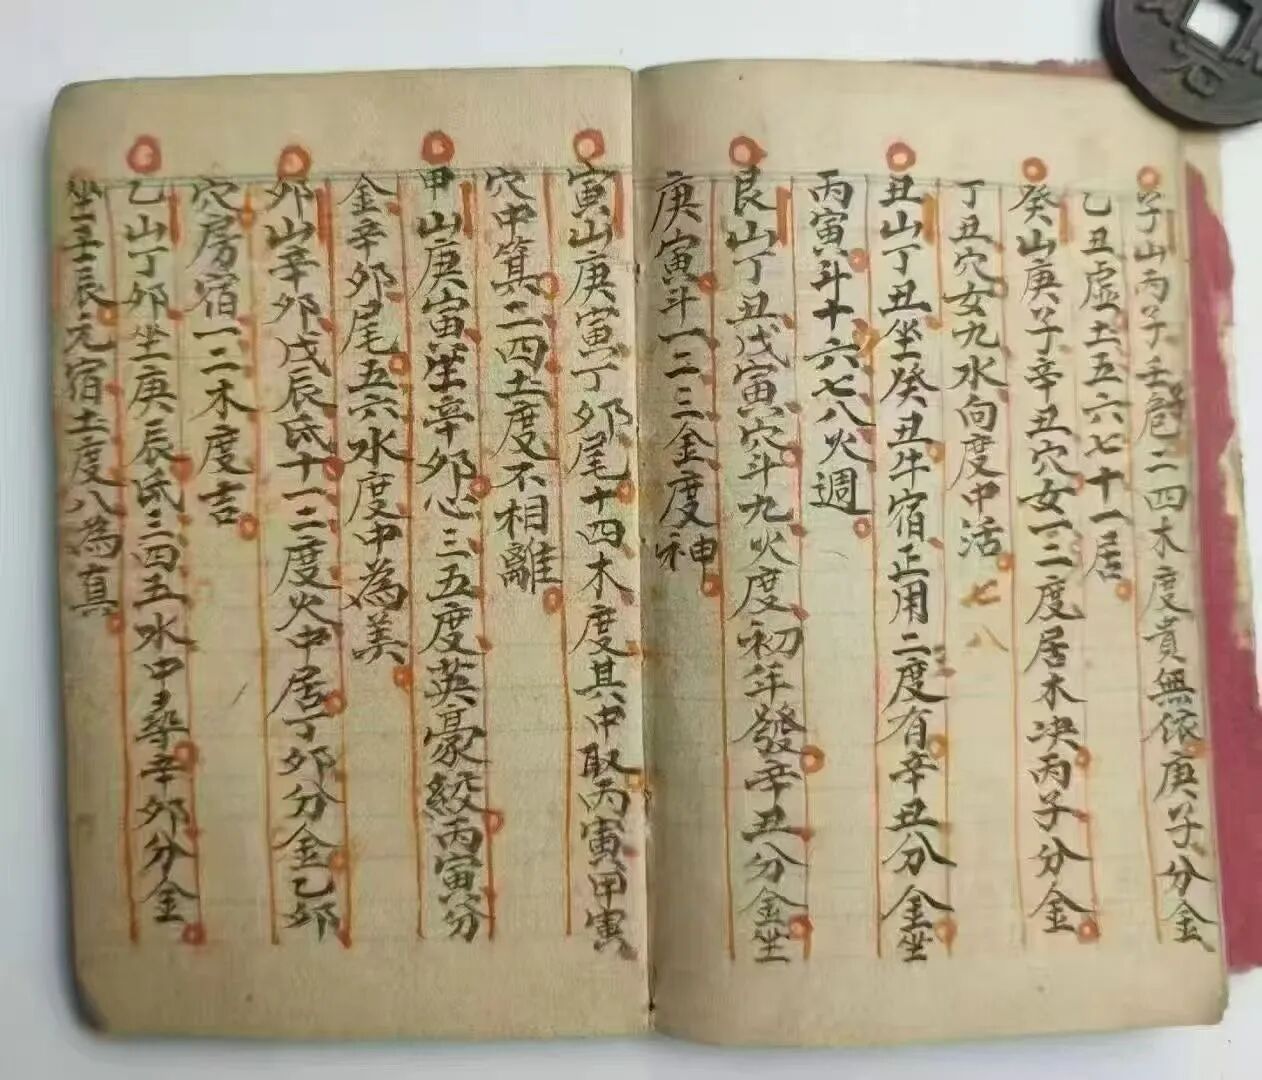 子山丙子壬危二四木度貴無依庚子分金
乙丑虛土五六七十一居
癸山庚子辛丑穴女一二度居木决丙子分金
丁丑穴女九水向度中活
七八
丑山丁丑坐癸丑牛宿正用二度有辛丑分金坐
丙寅斗十六七八火週
艮山丁丑戊寅穴斗九火度初年發辛丑分金坐
庚寅斗一二三金度神
寅山庚寅丁卯尾十四木度其中取丙寅甲寅
穴中箕二四土度不相離
甲山庚寅坐辛卯心三五度英豪經丙寅分
金辛卯尾五六水度中為美
卯山辛卯戊辰氐十一二度火中居丁卯分金乙卯
穴房宿一二木度吉
乙山丁卯坐庚辰氐三四五水中尋辛卯分金
坐壬辰亢宿土度八為真
元